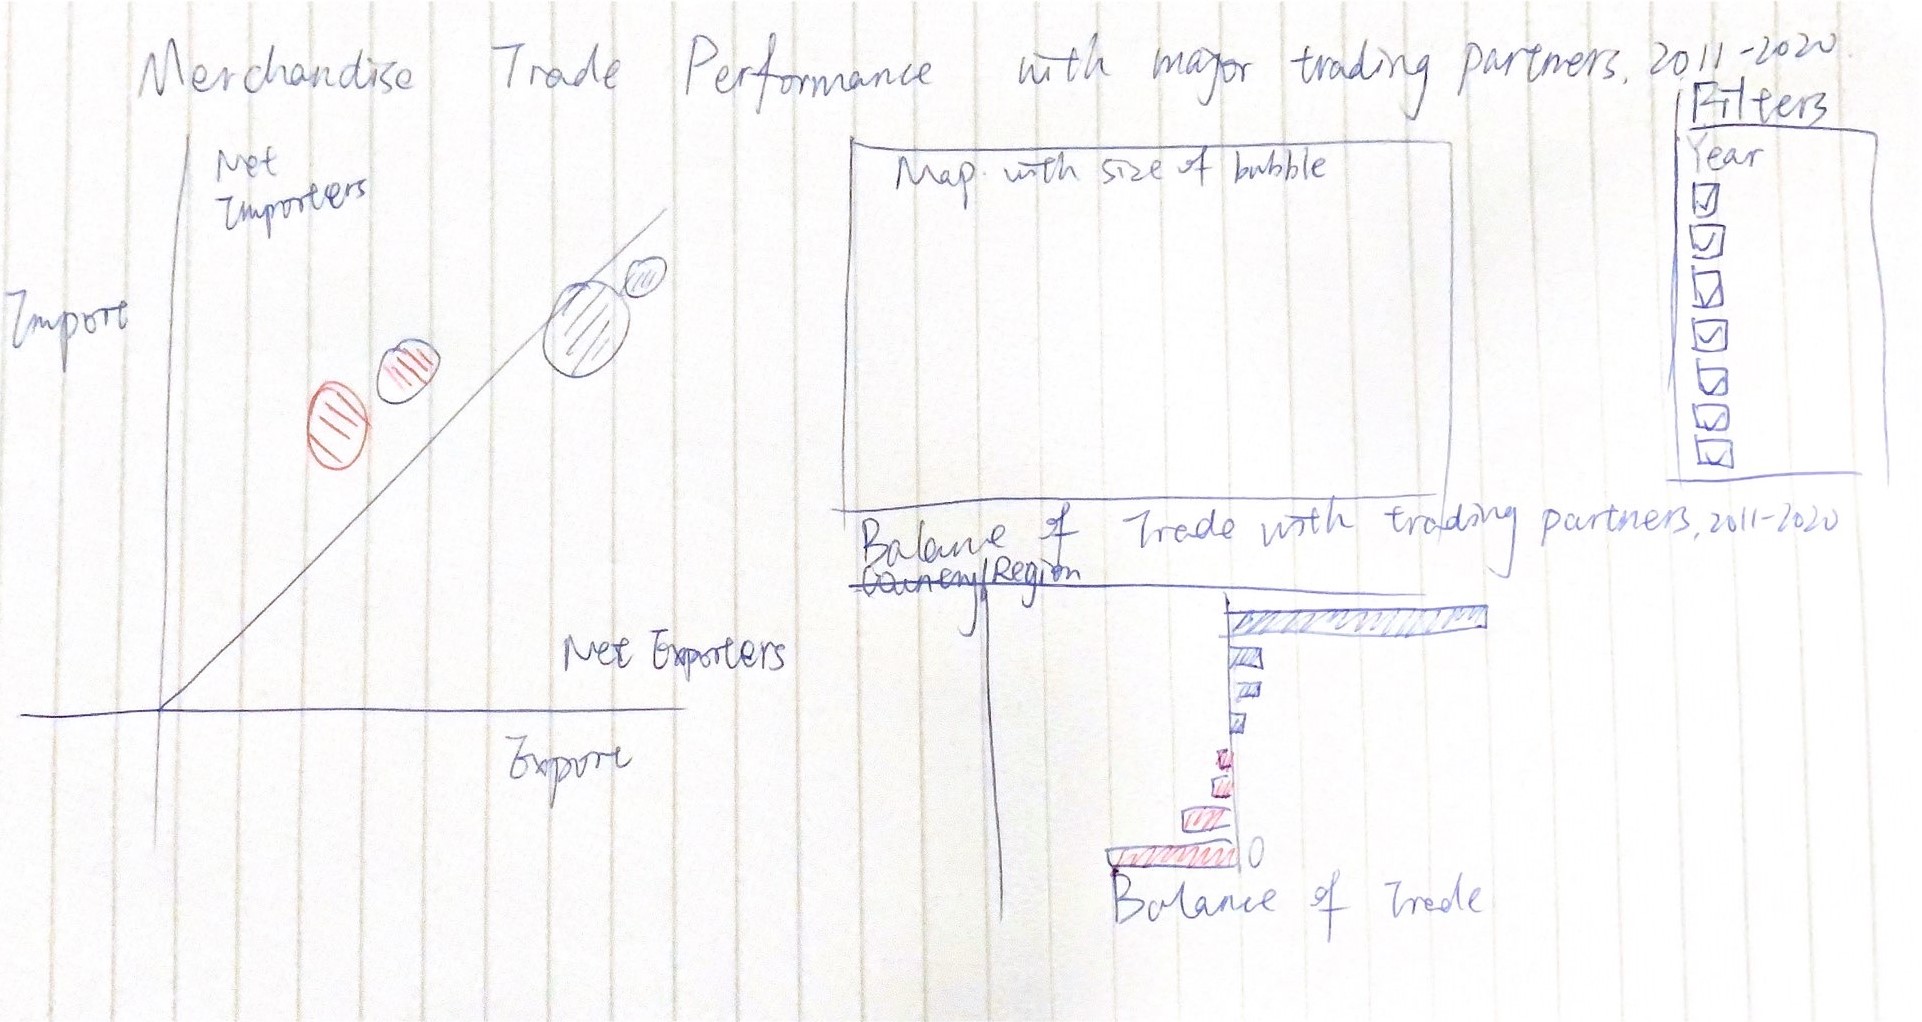 Merchandise Trade Performance with major trading partners, 2011-2020.
Filters
Year
Net
Importers
Import
Net Exporters
Export
Map with size of bubble
Balance of Trade with trading partners, 2011-2020
Country/Region
0
Balance of Trade